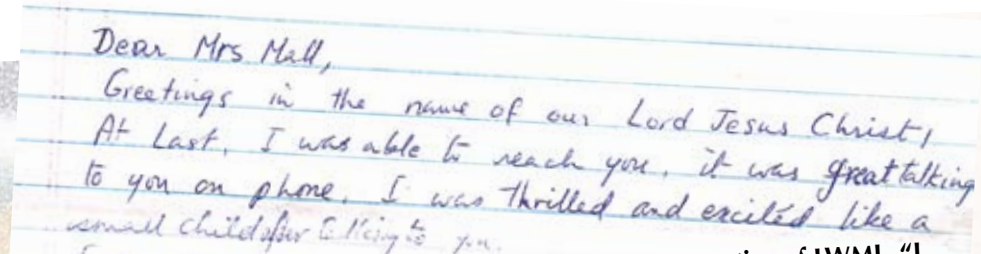 Dear Mrs Mall,
Greetings in the name of our Lord Jesus Christ,
At Last, I was able to reach you, it was great talking
to you on phone. I was thrilled and excited like a
small child after talking to you.
of LWML "I